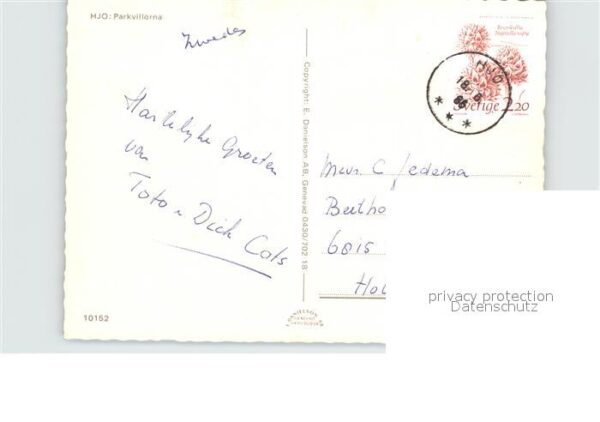 HJO: Parkvillorna
Zweden
Hartelijke Groeten
van
Toto & Dick Cats
Copyright: E. Danielson AB, Genevad 0430/702 18
HJO
18. 6
86
Sverige 2.20
Mevr. C Jedema
Beetho
6815
Hol
10152
privacy protection
Datenschutz